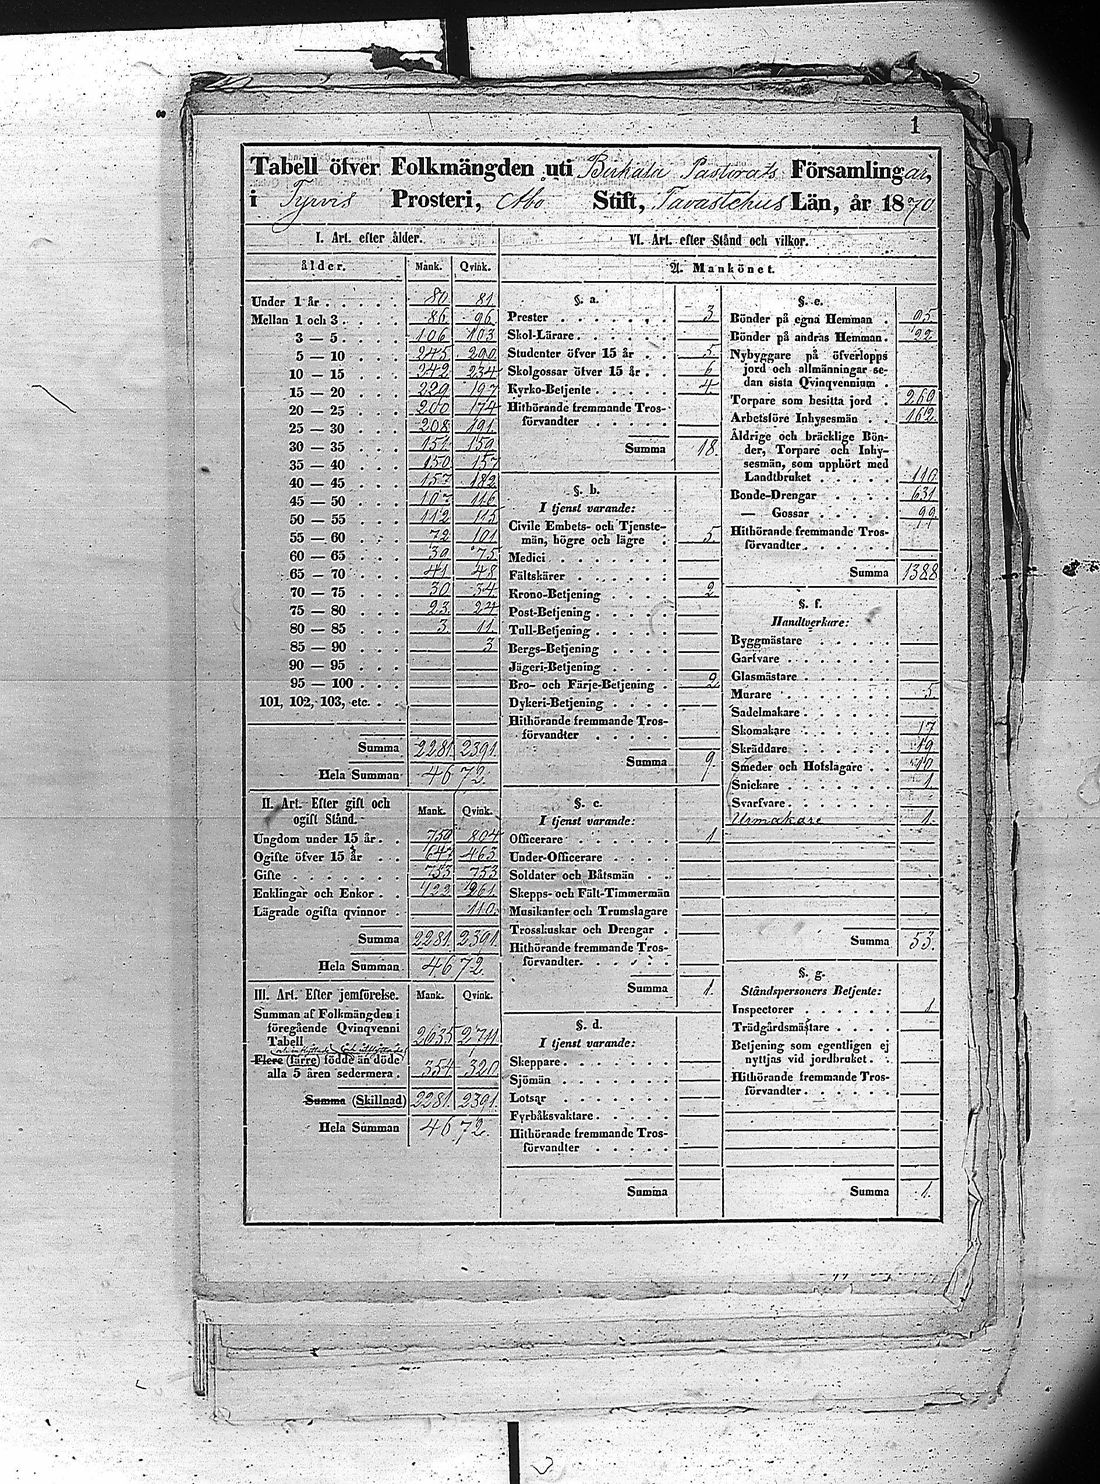 1
Tabell öfver Folkmängden uti Birkala Pastorats Församlingar,
i Tyrvis Prosteri, Åbo Stift, Tavastehus Län, år 1870
I. Art. efter ålder.
ålder. Mank. Qvink.
Under 1 år 80 81
Mellan 1 och 3 86 96
3 — 5 106 103
5 — 10 245 290
10 — 15 242 234
15 — 20 229 197
20 — 25 200 174
25 — 30 208 191
30 — 35 151 159
35 — 40 150 157
40 — 45 157 182
45 — 50 107 116
50 — 55 112 115
55 — 60 72 101
60 — 65 39 75
65 — 70 41 48
70 — 75 30 34
75 — 80 23 24
80 — 85 3 11
85 — 90 3
90 — 95
95 — 100
101, 102, 103, etc.
Summa 2281 2391
Hela Summan 4672
II. Art. Efter gift och
ogift Stånd. Mank. Qvink.
Ungdom under 15 år 759 804
Ogifte öfver 15 år 647 463
Gifte 753 753
Enklingar och Enkor 122 261
Lägrade ogifta qvinnor 110
Summa 2281 2391
Hela Summan 4672
III. Art. Efter jemförelse. Mank. Qvink.
Summan af Folkmängden i
föregående Qvinqvenni
Tabell 2635 2711
Flere (färre) födde än döde
alla 5 åren sedermera 354 320
Summa (Skillnad) 2281 2391
Hela Summan 4672
VI. Art. efter Stånd och vilkor.
A. Mankönet.
§. a.
Prester 3
Skol-Lärare
Studenter öfver 15 år 5
Skolgossar öfver 15 år 6
Kyrko-Betjente 4
Hithörande fremmande Tros-
förvandter
Summa 18
§. b.
I tjenst varande:
Civile Embets- och Tjenste-
män, högre och lägre 5
Medici
Fältskärer
Krono-Betjening 2
Post-Betjening
Tull-Betjening
Bergs-Betjening
Jägeri-Betjening
Bro- och Färje-Betjening 2
Dykeri-Betjening
Hithörande fremmande Tros-
förvandter
Summa 9
§. c.
I tjenst varande:
Officerare 1
Under-Officerare
Soldater och Båtsmän
Skepps- och Fält-Timmermän
Musikanter och Trumslagare
Trosskuskar och Drengar
Hithörande fremmande Tros-
förvandter
Summa 1
§. d.
I tjenst varande:
Skeppare
Sjömän
Lotsar
Fyrbåksvaktare
Hithörande fremmande Tros-
förvandter
Summa
§. e.
Bönder på egna Hemman 95
Bönder på andras Hemman 22
Nybyggare på öfverlopps
jord och allmänningar se-
dan sista Qvinqvennium
Torpare som besitta jord 269
Arbetsföre Inhysesmän 162
Åldrige och bräcklige Bön-
der, Torpare och Inhy-
sesmän, som upphört med
Landtbruket 110
Bonde-Drengar 631
— Gossar 99
Hithörande fremmande Tros-
förvandter
Summa 1388
§. f.
Handtverkare:
Byggmästare
Garfvare
Glasmästare
Murare 5
Sadelmakare
Skomakare 17
Skräddare 19
Smeder och Hofslagare 10
Snickare 1
Svarfvare
Urmakare 1
Summa 53
§. g.
Ståndspersoners Betjente:
Inspectorer 1
Trädgårdsmästare
Betjening som egentligen ej
nyttjas vid jordbruket
Hithörande fremmande Tros-
förvandter
Summa 1